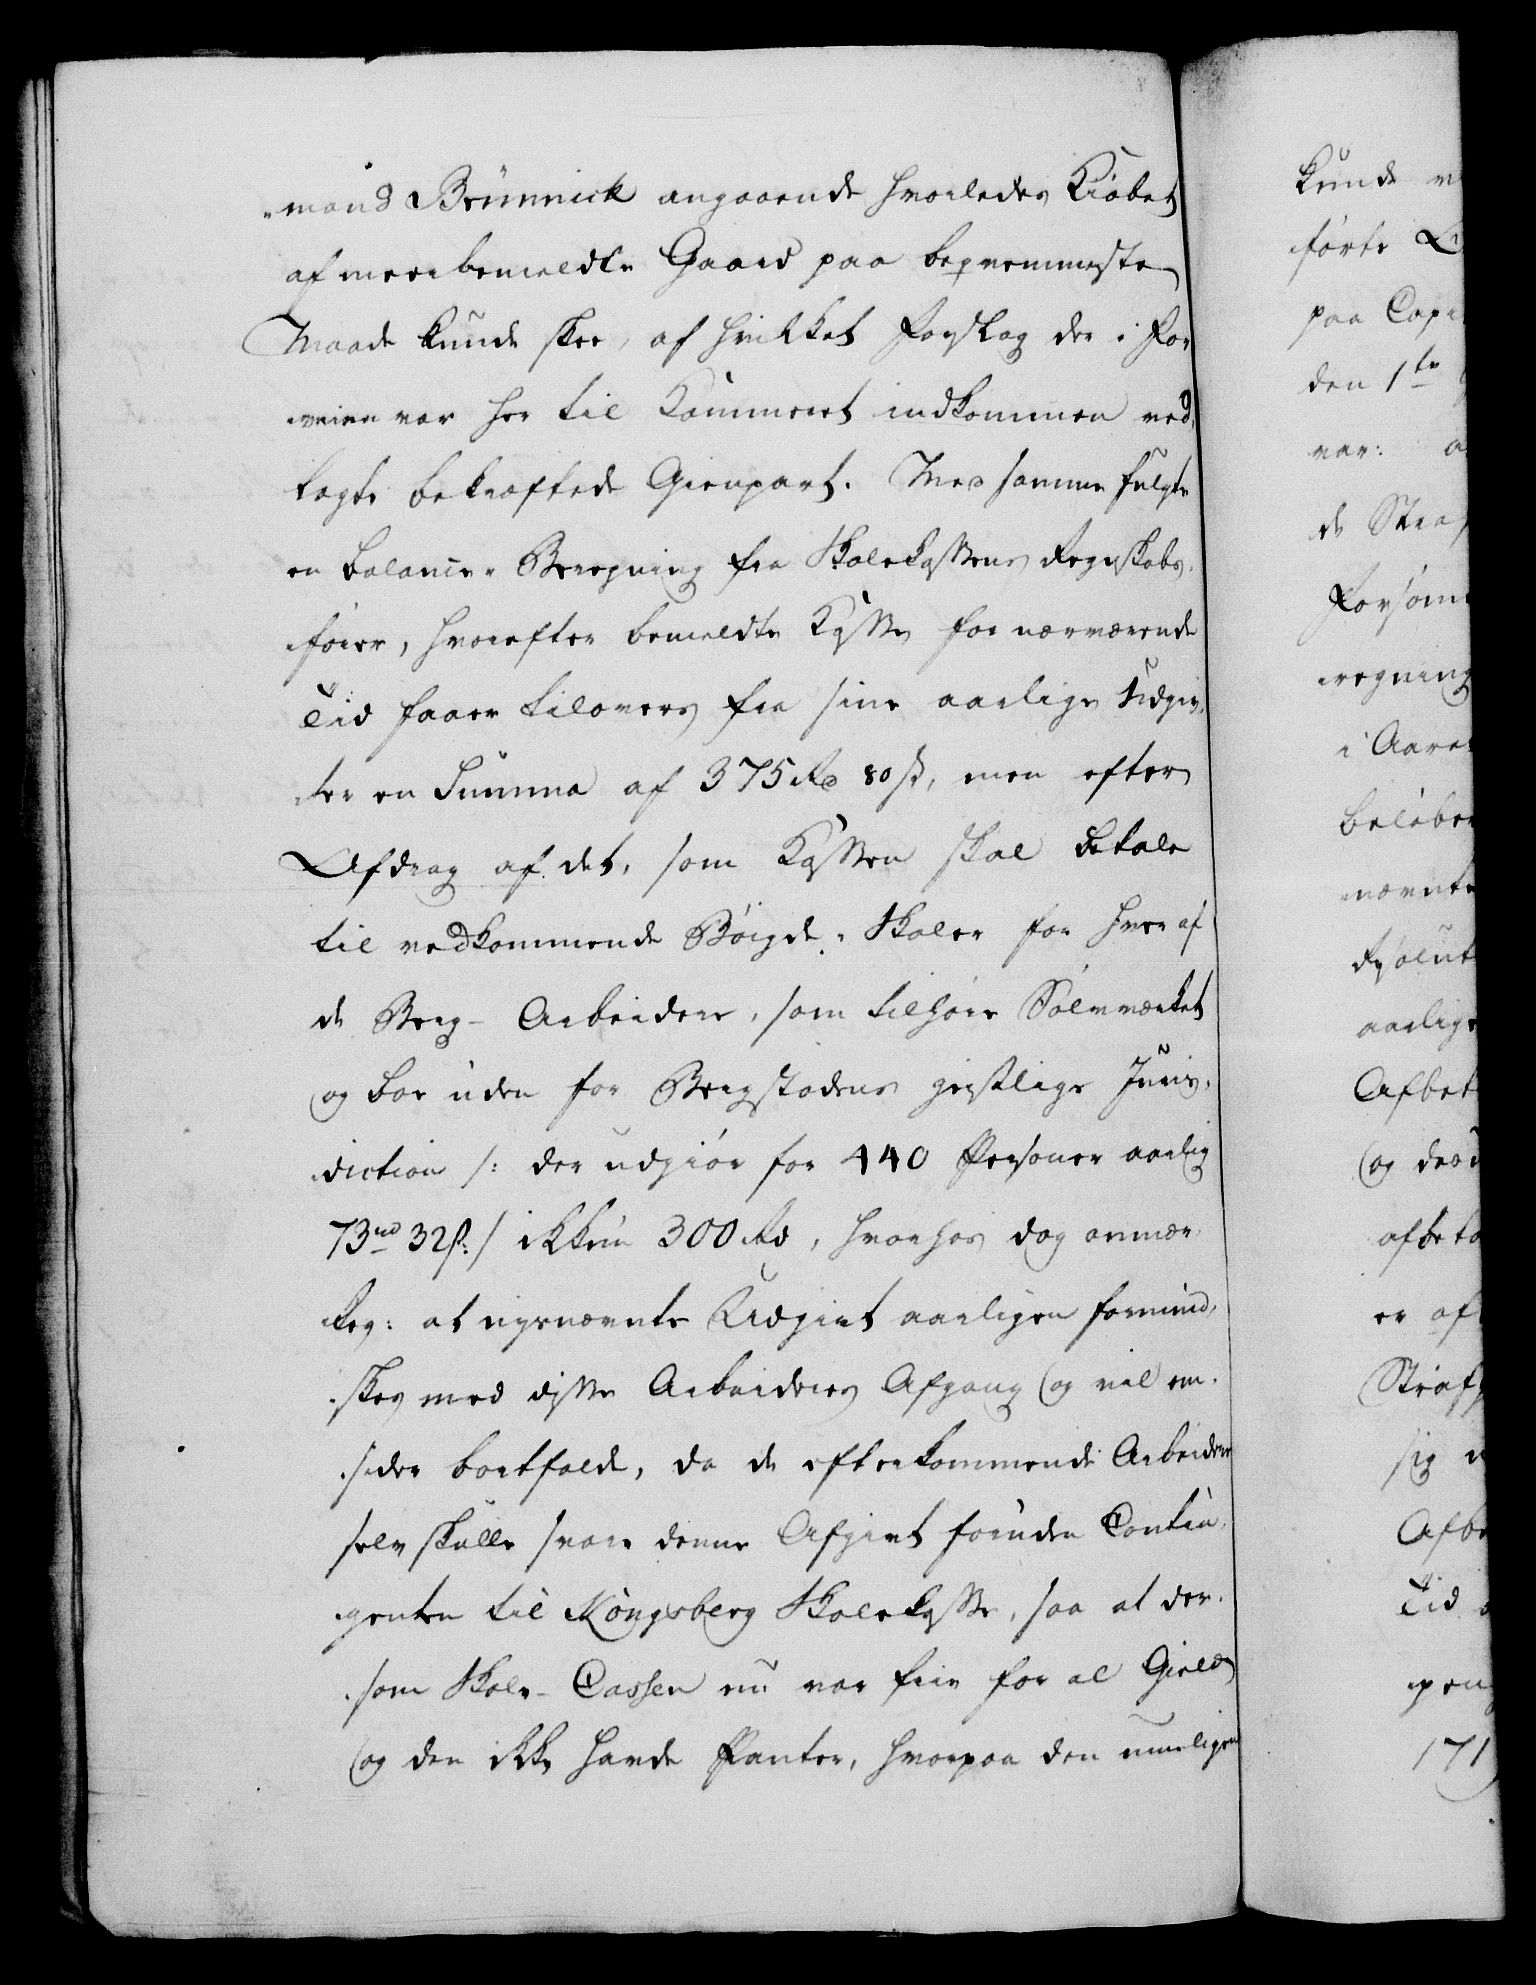 -mand Brünnick angaaende hvorledes Kiøbet
af meerbemeldte Gaard paa beqvemmeste
Maade kunde skee, af hvilket Forslag der i For
veien var her til Kammeret indkommen ved,
lagte bekræftede Gienpart. Med samme fulgte
en balance-Beregning fra Skolekassens Regnskabs,
fører, hvorefter bemeldte Kasse for nærværende
Tid faaer tilovers fra sine aarlige Udgiv,
ter en Summa af 375 Rd 80 s, men efter
Afdrag af det, som Kassen skal betale
til vedkommende Bøigde-Skoler for hver af
de Berg-Arbeidere, som tilhøre Sølvværket
og boe uden for Bergstadens geistlige Juris,
diction /: der udgiør for 440 Personer aarlig
73 rd 32 s :/ ikkun 300 Rd, hvorhos dog anmær,
kes: at sidstnævnte Udgivt aarligen formind,
skes med disse Arbeideres Afgang og vil om,
sider bortfalde, da de efterkommende Arbeidere
selv skulle svare denne Afgivt foruden Contin,
genten til Kongsberg Skolekasse, saa at der,
som Skole-Cassen nu var frie for al Gield
og den ikke havde Panter, hvorpaa den umuligen
kunde
førte
paa Cap
den 1te
var:
de Stra
Forsøm
regning
i Aaret
beløber
nævnte
Resolut
aarlige
Afbet
og des
afbeta
er af
Straf
sig
Afbe
Tid
pen
171